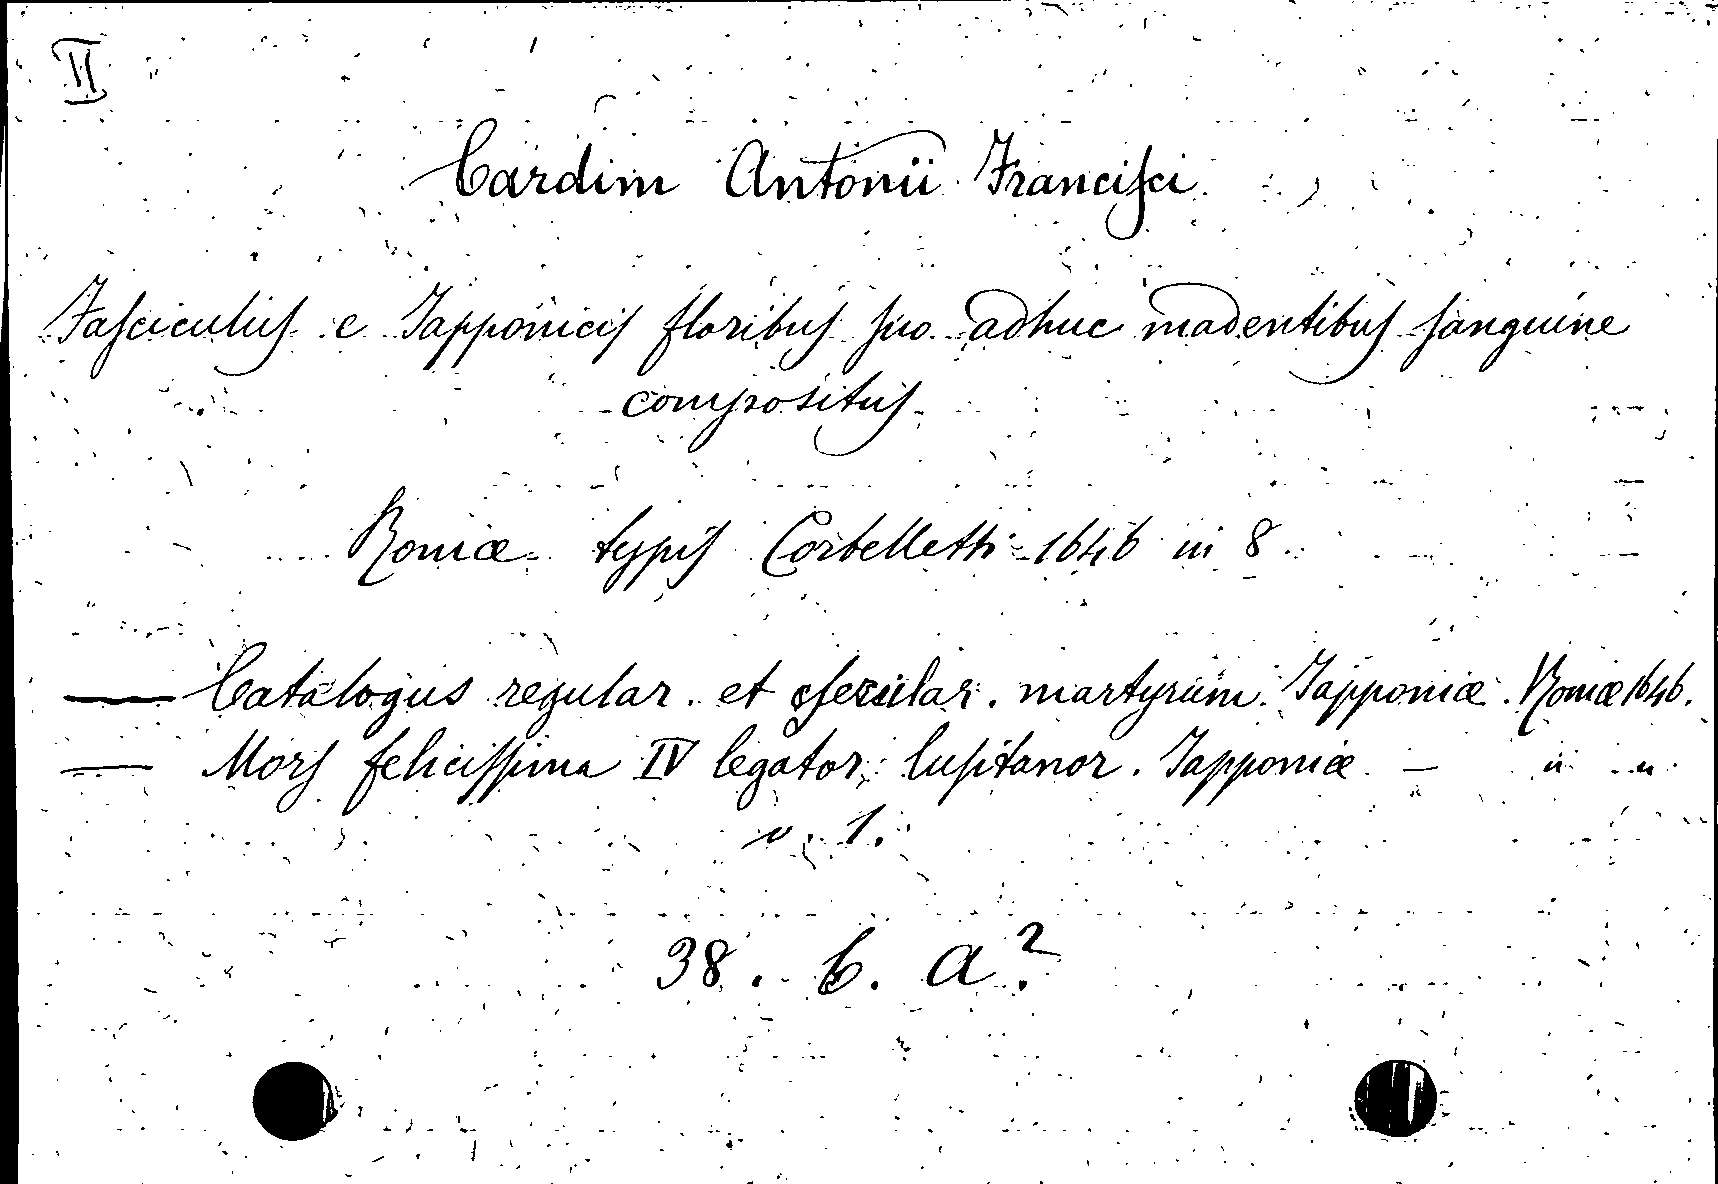 II
Cardim Antonii Francisci
Fasciculus e Japponicis floribus suo adhuc madentibus sanguine
compositus
Romæ typis Corbelletti 1646 in 8
— Catalogus regular. et secular. martyrum Japponiæ. Romæ 1646.
— Mors felicissima IV legator. lusitanor. Japponiæ — " "
v. 1.
38. b. a².